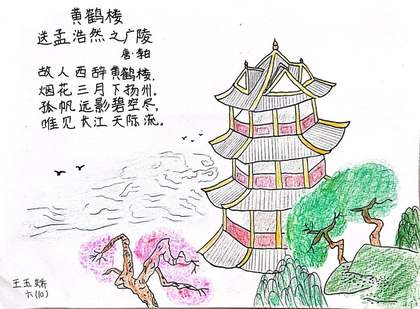 黄鹤楼
送孟浩然之广陵
唐·李白
故人西辞黄鹤楼，
烟花三月下扬州。
孤帆远影碧空尽，
唯见长江天际流。
王玉娇
六(10)